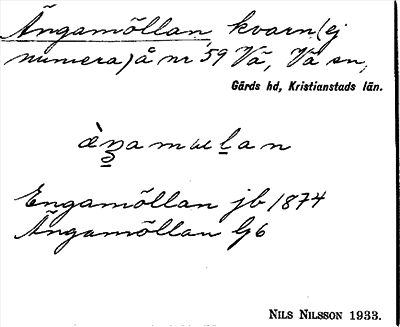 Ängamöllan, kvarn (ej
numera) å nr 59 Vä, Vä sn,
Gärds hd, Kristianstads län.
Engamöllan jb 1874
Ängamöllan
NILS NILSSON 1933.